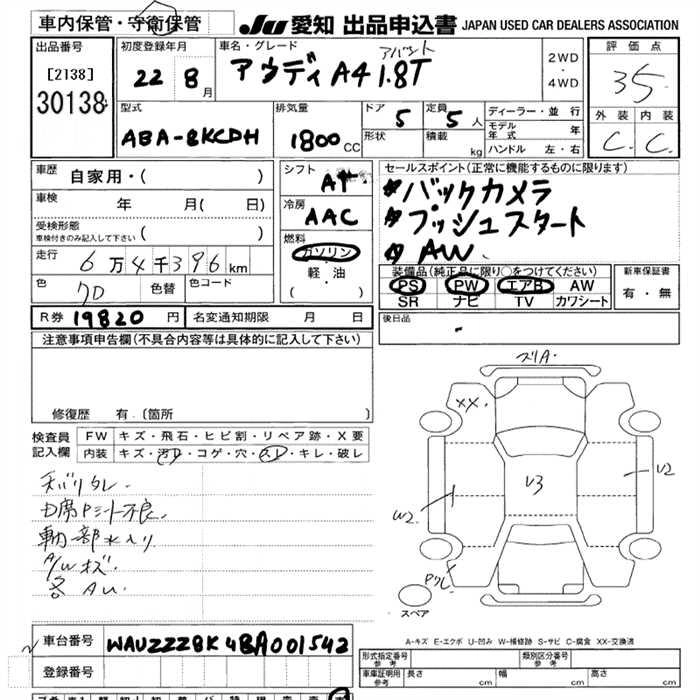 車内保管・守衛保管
JU 愛知 出品申込書 JAPAN USED CAR DEALERS ASSOCIATION
出品番号
[2138]
30138
初度登録年月
22 8 月
車名・グレード
アバント
アウディ A4 1.8T
2WD
・
4WD
評価点
3.5
外装 内装
C. C.
型式
ABA-8KCDH
排気量
1800 CC
ドア 5
定員 5 人
形状
積載 kg
ディーラー・並行
モデル年式 年
ハンドル 左・右
車歴
自家用・( )
車検
年 月( 日)
受検形態
車検付きのみ記入して下さい ( )
走行
6万4千396km
色
色替
色コード
シフト
AT
冷房
AAC
燃料
ガソリン
・
軽・油
( )
セールスポイント(正常に機能するものに限ります)
バックカメラ
プッシュスタート
AW
装備品(純正品に限り○をつけてください)
PS PW エアB AW
SR ナビ TV カワシート
新車保証書
有・無
R券 19820 円
名変通知期限 月 日
後日品
注意事項申告欄(不具合内容等は具体的に記入して下さい)
修復歴 有.〔箇所 〕
検査員記入欄
FW キズ・飛石・ヒビ割・リペア跡・X要
内装 キズ・汚レ・コゲ・穴・スレ・キレ・破レ
スリA
XX
V3
U2
W2
スペア
A-キズ E-エクボ U-凹み W-補修跡 S-サビ C-腐食 XX-交換済
車台番号 WAUZZZ8K4BA001542
登録番号
形式指定番号
参考
類別区分番号
参考
車庫証明用
参考
長さ cm
幅 cm
高さ cm